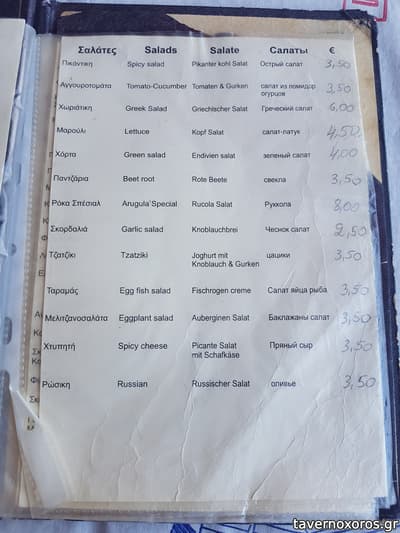 Σαλάτες Salads Salate Салаты €
Πικάντικη Spicy salad Pikanter kohl Salat Острый салат 3,50
Αγγουροτομάτα Tomato-Cucumber Tomaten & Gurken салат из помидор огурцов 3,50
Χωριάτικη Greek Salad Griechischer Salat Греческий салат 6,00
Μαρούλι Lettuce Kopf Salat салат-латук 4,50
Χόρτα Green salad Endivien salat зеленый салат 4,00
Παντζάρια Beet root Rote Beete свекла 3,50
Ρόκα Σπέσιαλ Arugula Special Rucola Salat Руккола 8,00
Σκορδαλιά Garlic salad Knoblauchbrei Чеснок салат 2,50
Τζατζίκι Tzatziki Joghurt mit Knoblauch & Gurken цацики 3,50
Ταραμάς Egg fish salad Fischrogen creme Салат яйца рыба 3,50
Μελιτζανοσαλάτα Eggplant salad Auberginen Salat Баклажаны салат 3,50
Χτυπητή Spicy cheese Picante Salat mit Schafkäse Пряный сыр 3,50
Ρώσικη Russian Russischer Salat оливье 3,50
tavernoxoros.gr